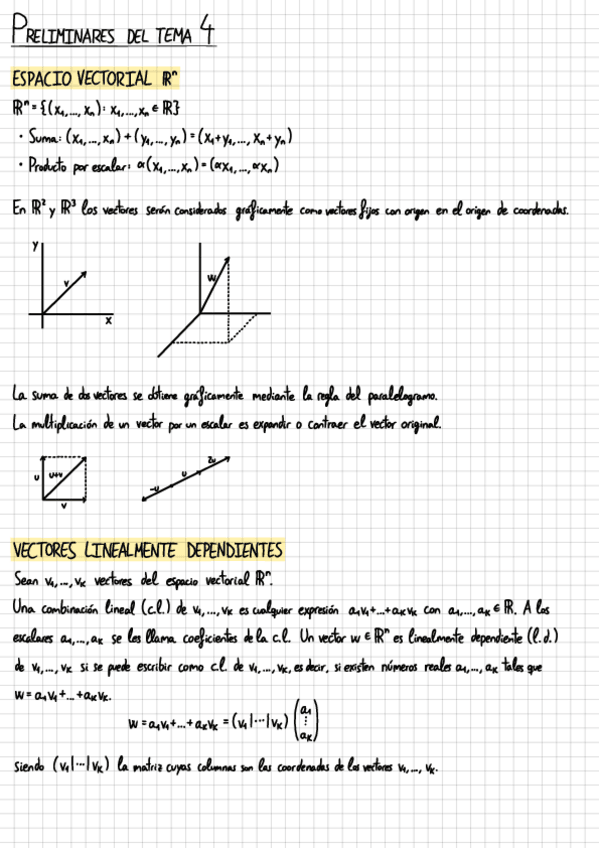 PRELIMINARES DEL TEMA 4
ESPACIO VECTORIAL ℝⁿ
ℝⁿ = {(x₁,...,xₙ): x₁,...,xₙ ∈ ℝ}
· Suma: (x₁,...,xₙ) + (y₁,...,yₙ) = (x₁+y₁,..., xₙ+yₙ)
· Producto por escalar: α(x₁,...,xₙ) = (αx₁,...,αxₙ)
En ℝ² y ℝ³ los vectores serán considerados gráficamente como vectores fijos con origen en el origen de coordenadas.
y
v
x
w
La suma de dos vectores se obtiene gráficamente mediante la regla del paralelogramo.
La multiplicación de un vector por un escalar es expandir o contraer el vector original.
u
u+v
v
-u
u
2u
VECTORES LINEALMENTE DEPENDIENTES
Sean v₁,...,vₖ vectores del espacio vectorial ℝⁿ.
Una combinación lineal (c.l.) de v₁,...,vₖ es cualquier expresión a₁v₁+...+aₖvₖ con a₁,...,aₖ ∈ ℝ. A los
escalares a₁,...,aₖ se les llama coeficientes de la c.l. Un vector w ∈ ℝⁿ es linealmente dependiente (l.d.)
de v₁,...,vₖ si se puede escribir como c.l. de v₁,...,vₖ, es decir, si existen números reales a₁,...,aₖ tales que
w = a₁v₁+...+aₖvₖ.
w = a₁v₁+...+aₖvₖ = (v₁|···|vₖ) (a₁ ⋮ aₖ)
siendo (v₁|···|vₖ) la matriz cuyas columnas son las coordenadas de los vectores v₁,...,vₖ.